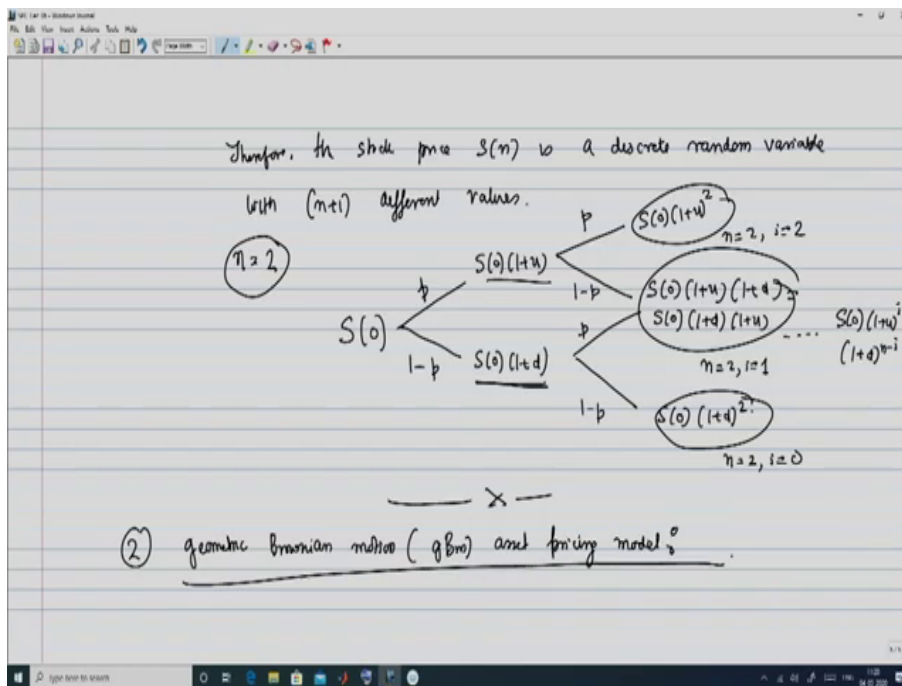 File Edit View Insert Actions Tools Help
Page Width
Therefore, th stock price S(n) is a discrete random variable
with (n+1) different values.
n = 2
S(0)
p
1-p
S(0)(1+u)
S(0)(1+d)
p
1-p
p
1-p
S(0)(1+u)^2
n=2, i=2
S(0)(1+u)(1+d) =
S(0)(1+d)(1+u)
n=2, i=1
.... S(0)(1+u)^i
(1+d)^{n-i}
S(0)(1+d)^2
n=2, i=0
—— X ——
② geometric Brownian motion (gBm) asset pricing model:
Type here to search